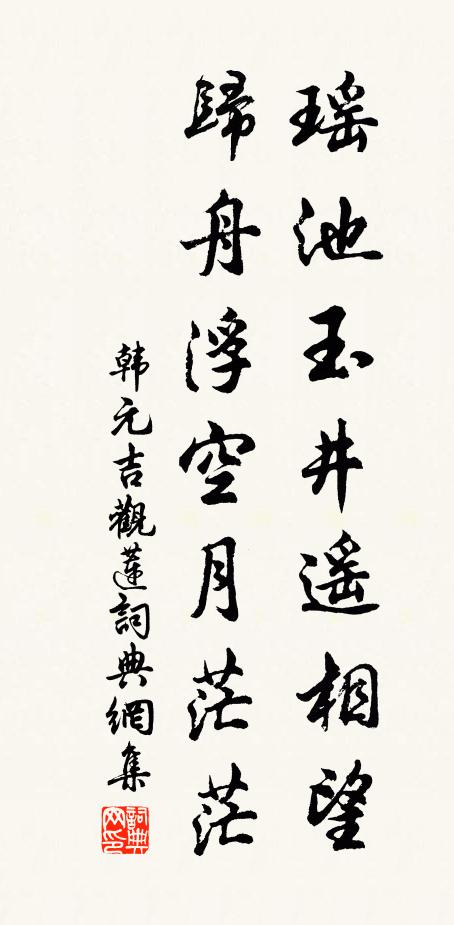 瑶池玉井遥相望
歸舟浮空月茫茫
韩元吉觀蓮詞典網集
詞典网印